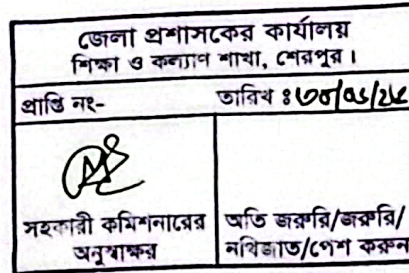 জেলা প্রশাসকের কার্যালয়
শিক্ষা ও কল্যাণ শাখা, শেরপুর ।
প্রাপ্তি নং-
তারিখ ঃ
সহকারী কমিশনারের
অনুস্বাক্ষর
অতি জরুরি/জরুরি/
নথিজাত/পেশ করুন